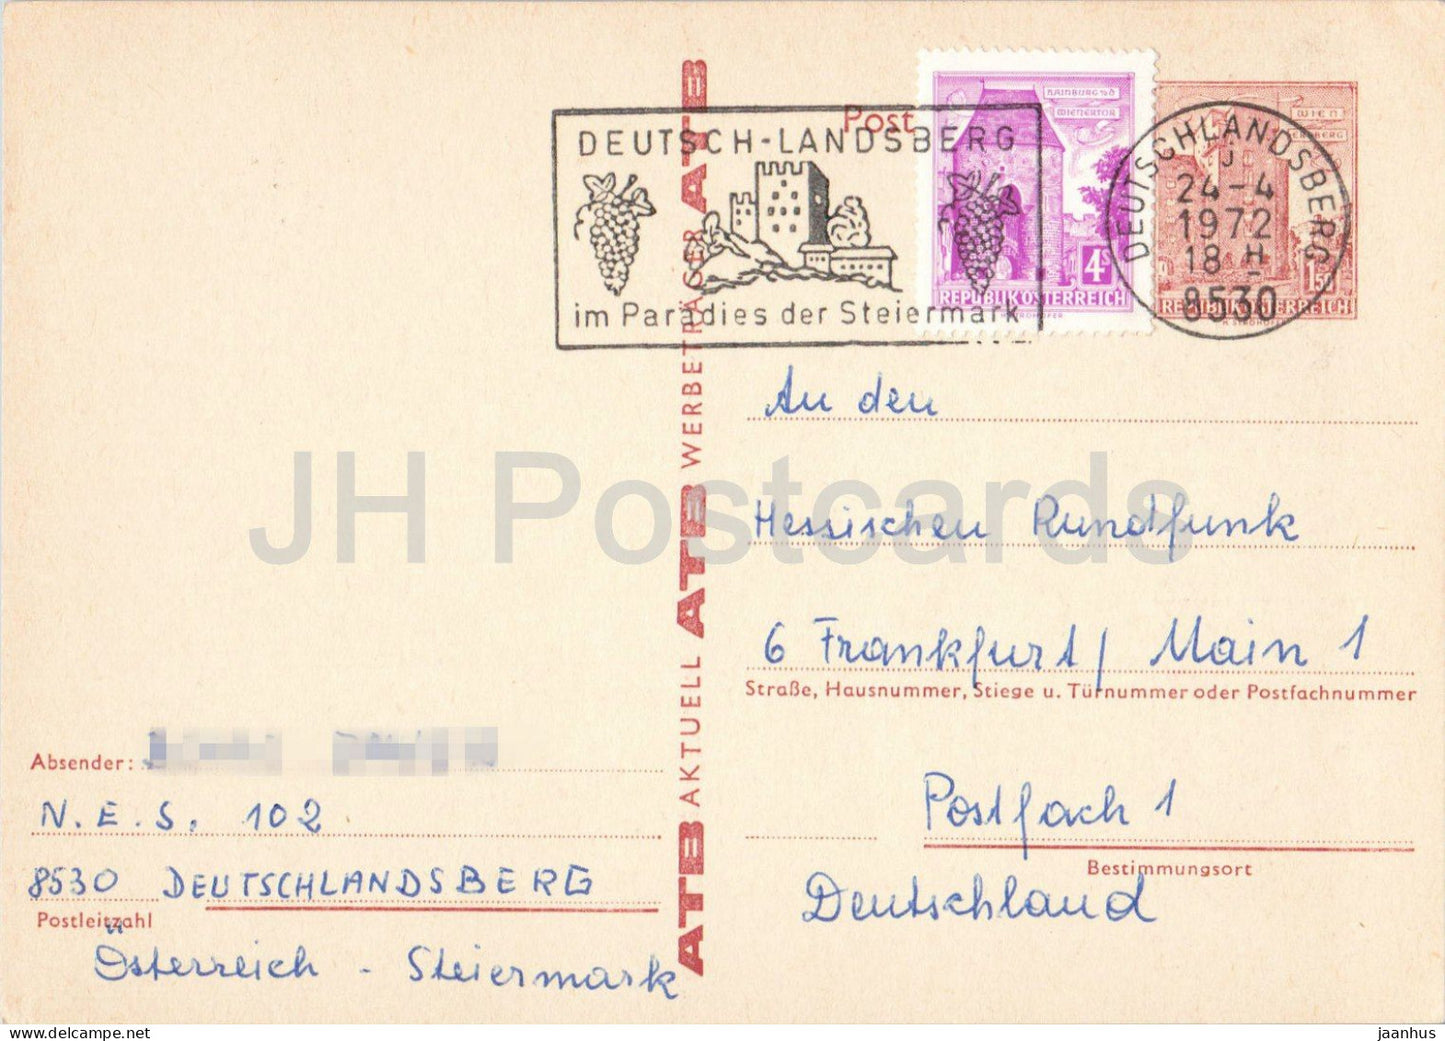 Post
DEUTSCH-LANDSBERG
im Paradies der Steiermark
HAINBURG a/d
WIENERTOR
4S
REPUBLIK ÖSTERREICH
WIEN
1.50
REPUBLIK ÖSTERREICH
DEUTSCHLANDSBERG
J
24-4
1972
18 H
8530
ATB AKTUELL ATB WERBETRÄGER ATB
An den
Hessischen Rundfunk
6 Frankfurt/ Main 1
Straße, Hausnummer, Stiege u. Türnummer oder Postfachnummer
Postfach 1
Bestimmungsort
Deutschland
Absender:
N.E.S. 102
8530 DEUTSCHLANDSBERG
Postleitzahl
Österreich - Steiermark
JH Postcards
www.delcampe.net
jaanhus